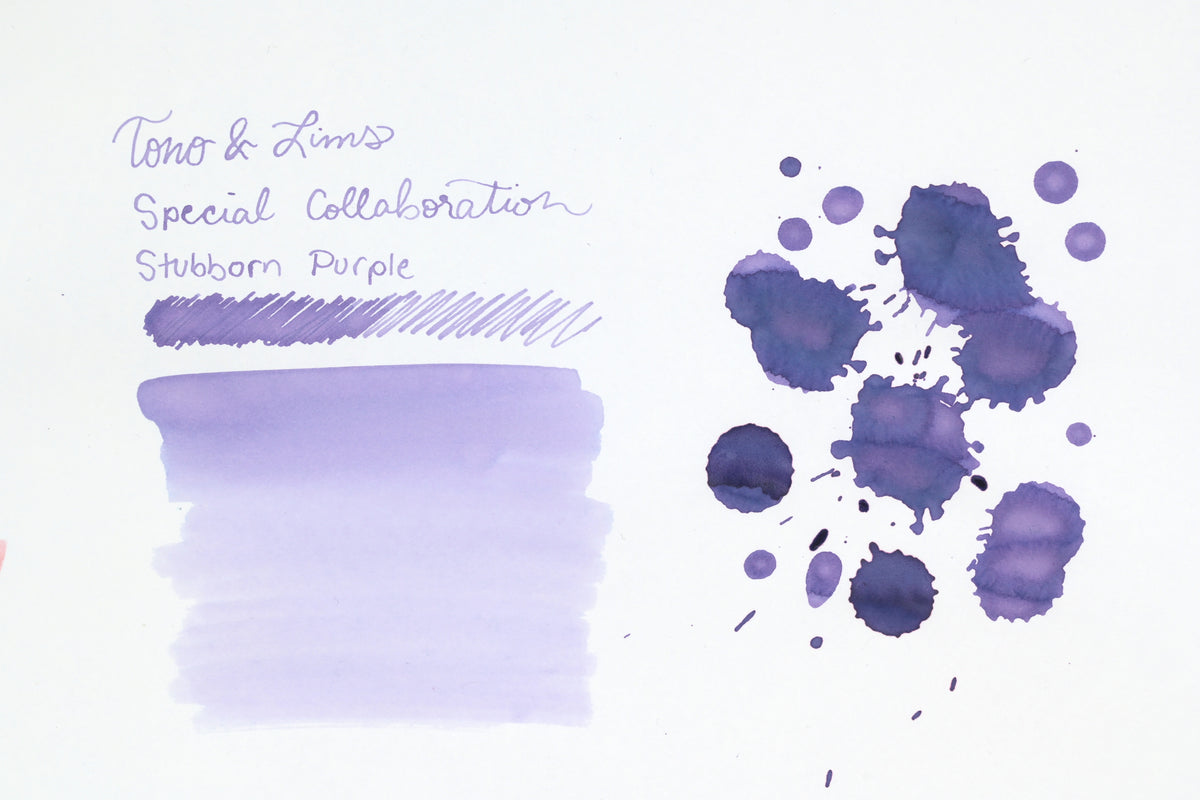 Tono & Lims
Special Collaboration
Stubborn Purple